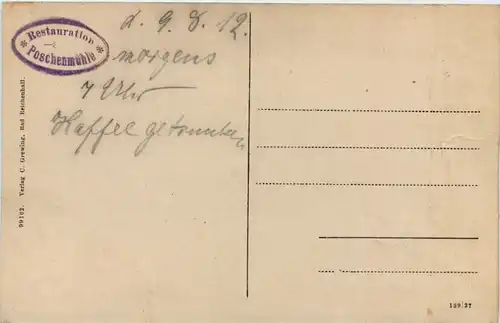 Restauration
Poschenmühle
d. 9. 8. 12.
morgens
7 Uhr
Kaffee getrunken
99102. Verlag C. Grewing, Bad Reichenhall.
189/27